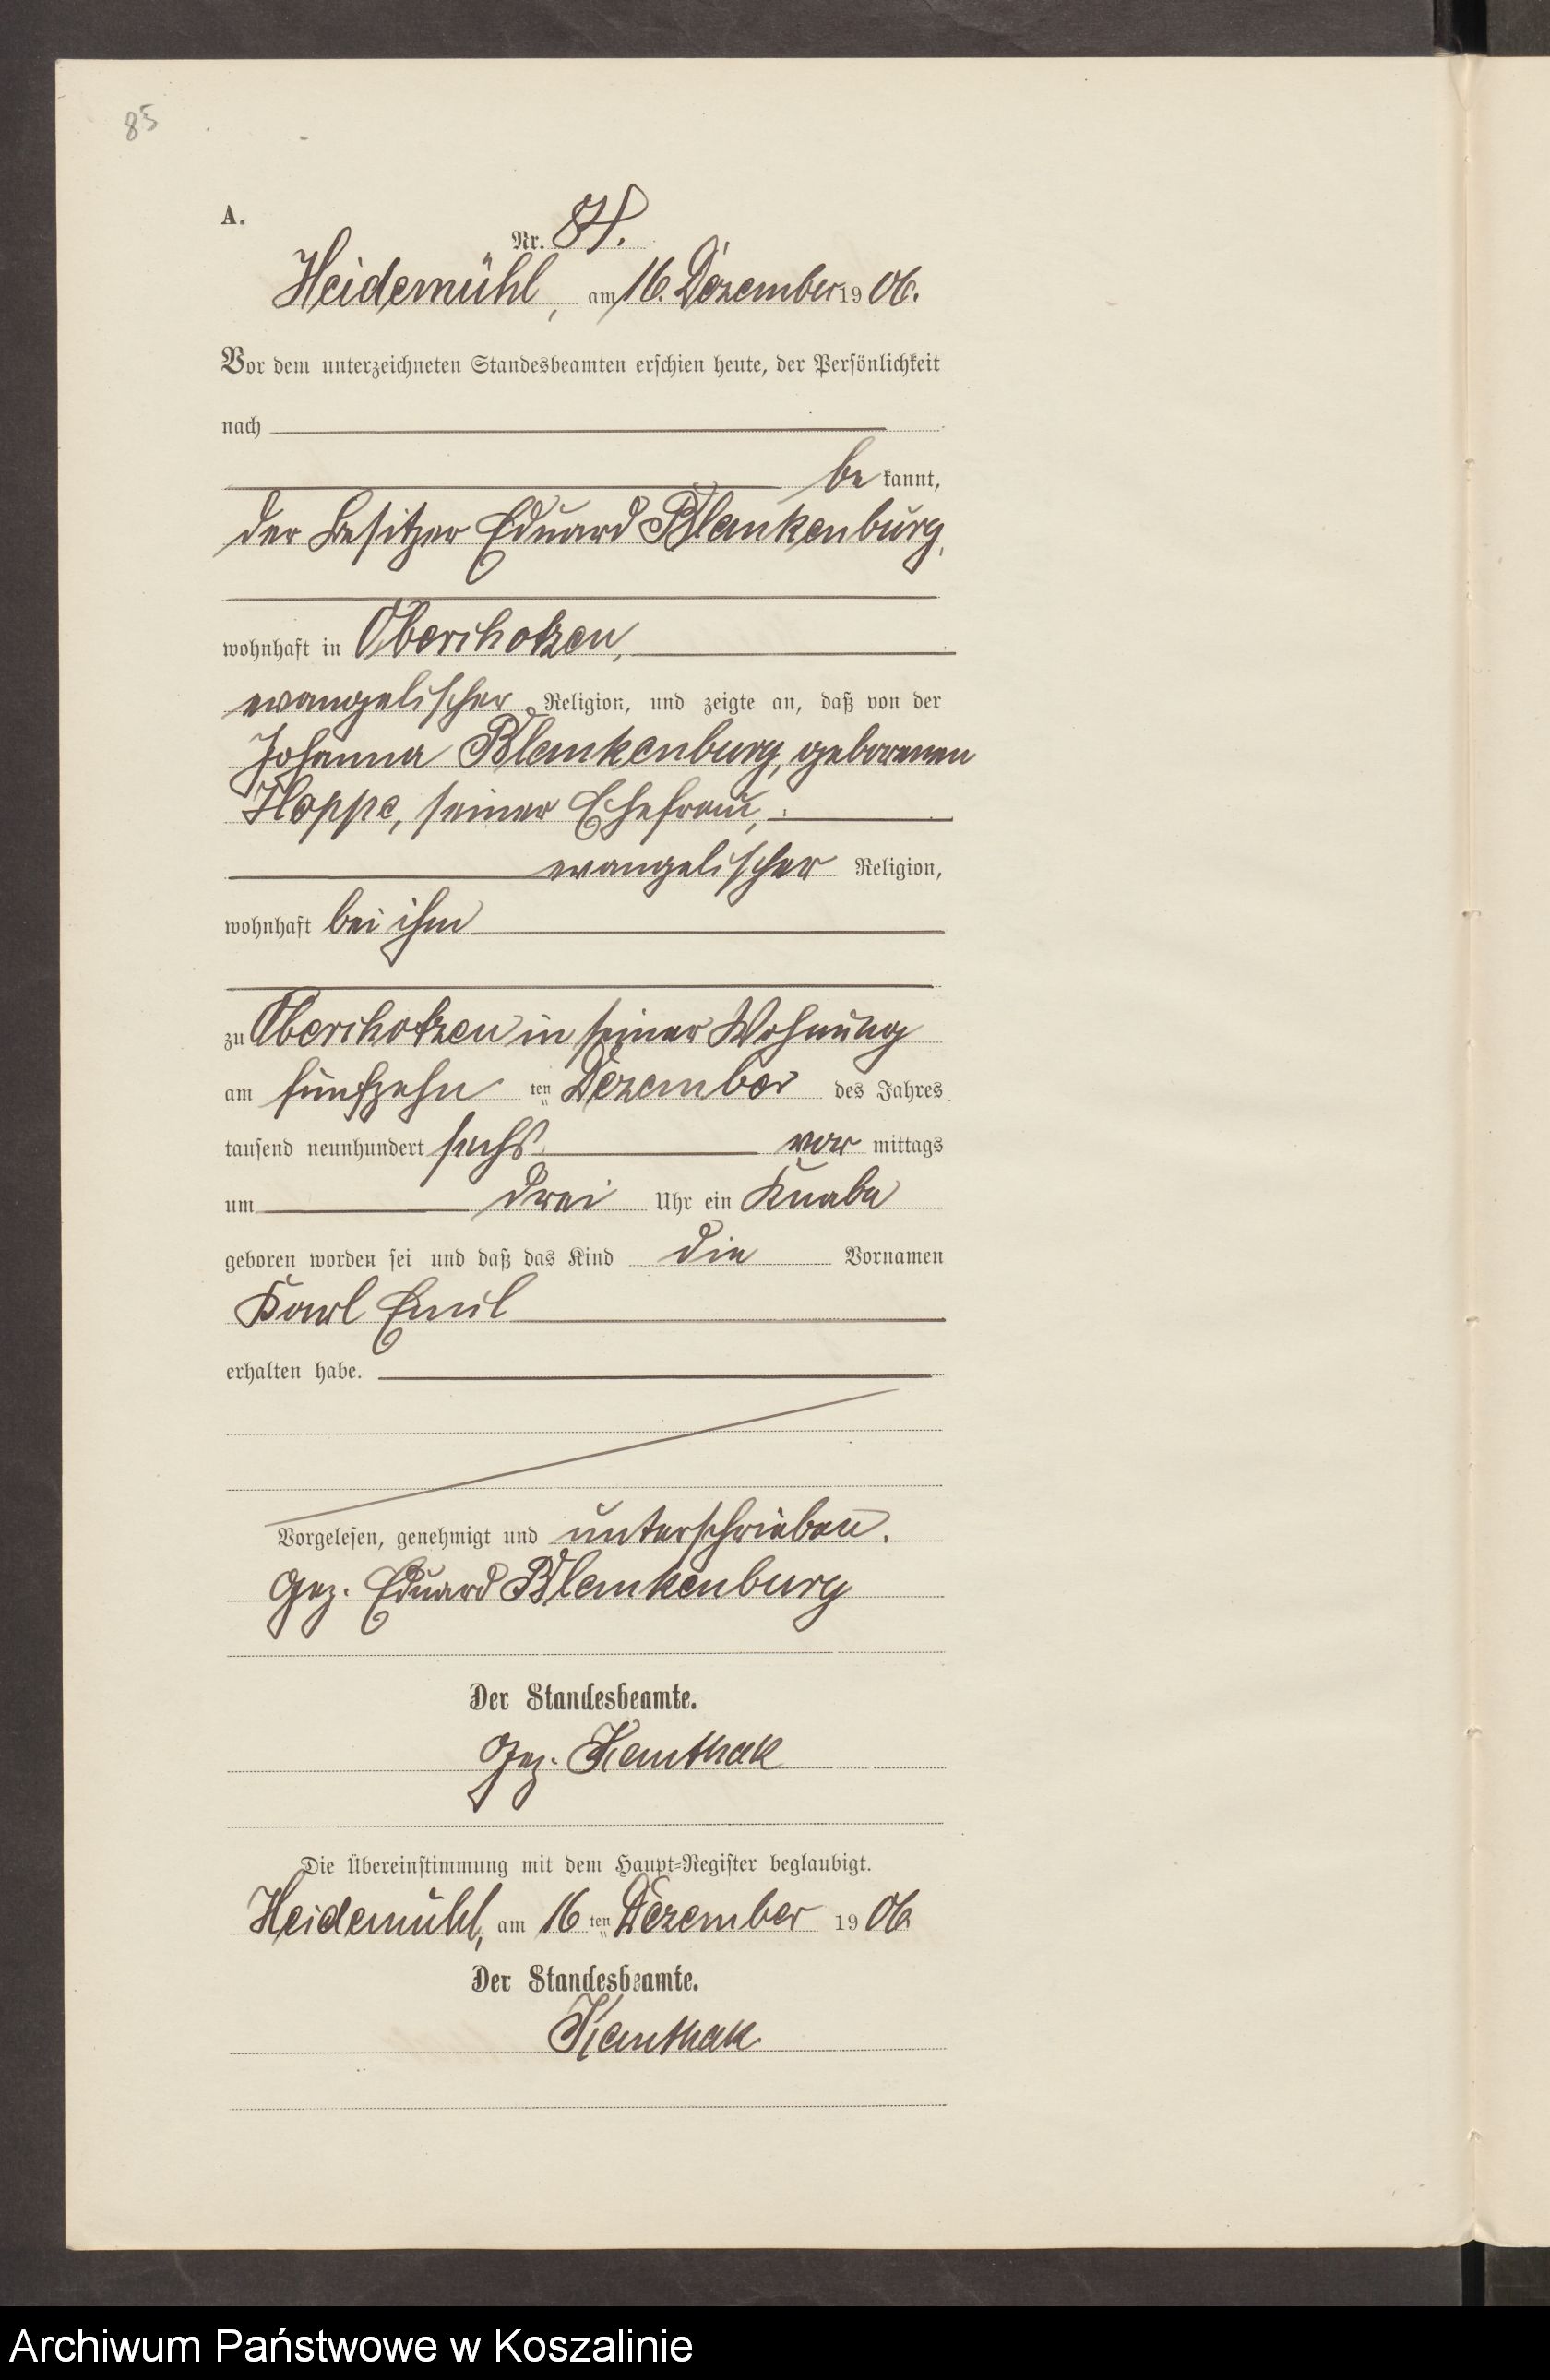 85
A.
Nr. 84.
Heidemühl, am 16. Dezember 1906.
Vor dem unterzeichneten Standesbeamten erschien heute, der Persönlichkeit
nach
be kannt,
der Besitzer Eduard Blankenburg,
wohnhaft in
evangelischer Religion, und zeigte an, daß von der
Johanna Blankenburg, geborenen
Hoppe, seiner Ehefrau,
evangelischer Religion,
wohnhaft bei ihm
zu in seiner Wohnung
am fünfzehn ten Dezember des Jahres
tausend neunhundert sechs vor mittags
um drei Uhr ein Knabe
geboren worden sei und daß das Kind die Vornamen
Karl Emil
erhalten habe.
Vorgelesen, genehmigt und unterschrieben.
Gez. Eduard Blankenburg
Der Standesbeamte.
Gez. Kanthak
Die Übereinstimmung mit dem Haupt-Register beglaubigt.
Heidemühl, am 16 ten Dezember 1906
Der Standesbeamte.
Kanthak
Archiwum Państwowe w Koszalinie